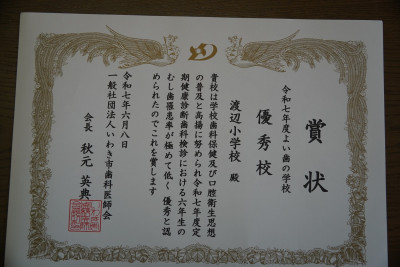 賞状
令和七年度よい歯の学校
優秀校
渡辺小学校 殿
貴校は学校歯科保健及び口腔衛生思想
の普及と高揚に努められ令和七年度定
期健康診断歯科検診における六年生の
むし歯罹患率が極めて低く優秀と認
められたのでこれを賞します
令和七年六月八日
一般社団法人いわき市歯科医師会
会長 秋元 英典